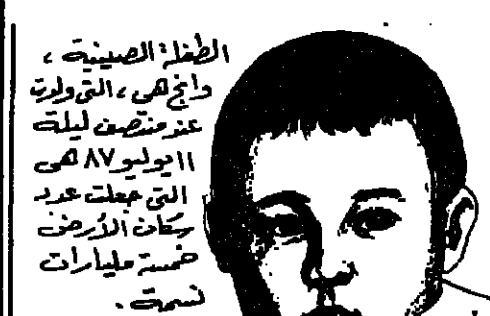 الطفلة الصينية ،
وانج هى ، التى ولدت
عند منتصف ليلة
١١ يوليو ٨٧ هى
التى جعلت عدد
سكان الأرض
خمسة مليارات
نسمة .